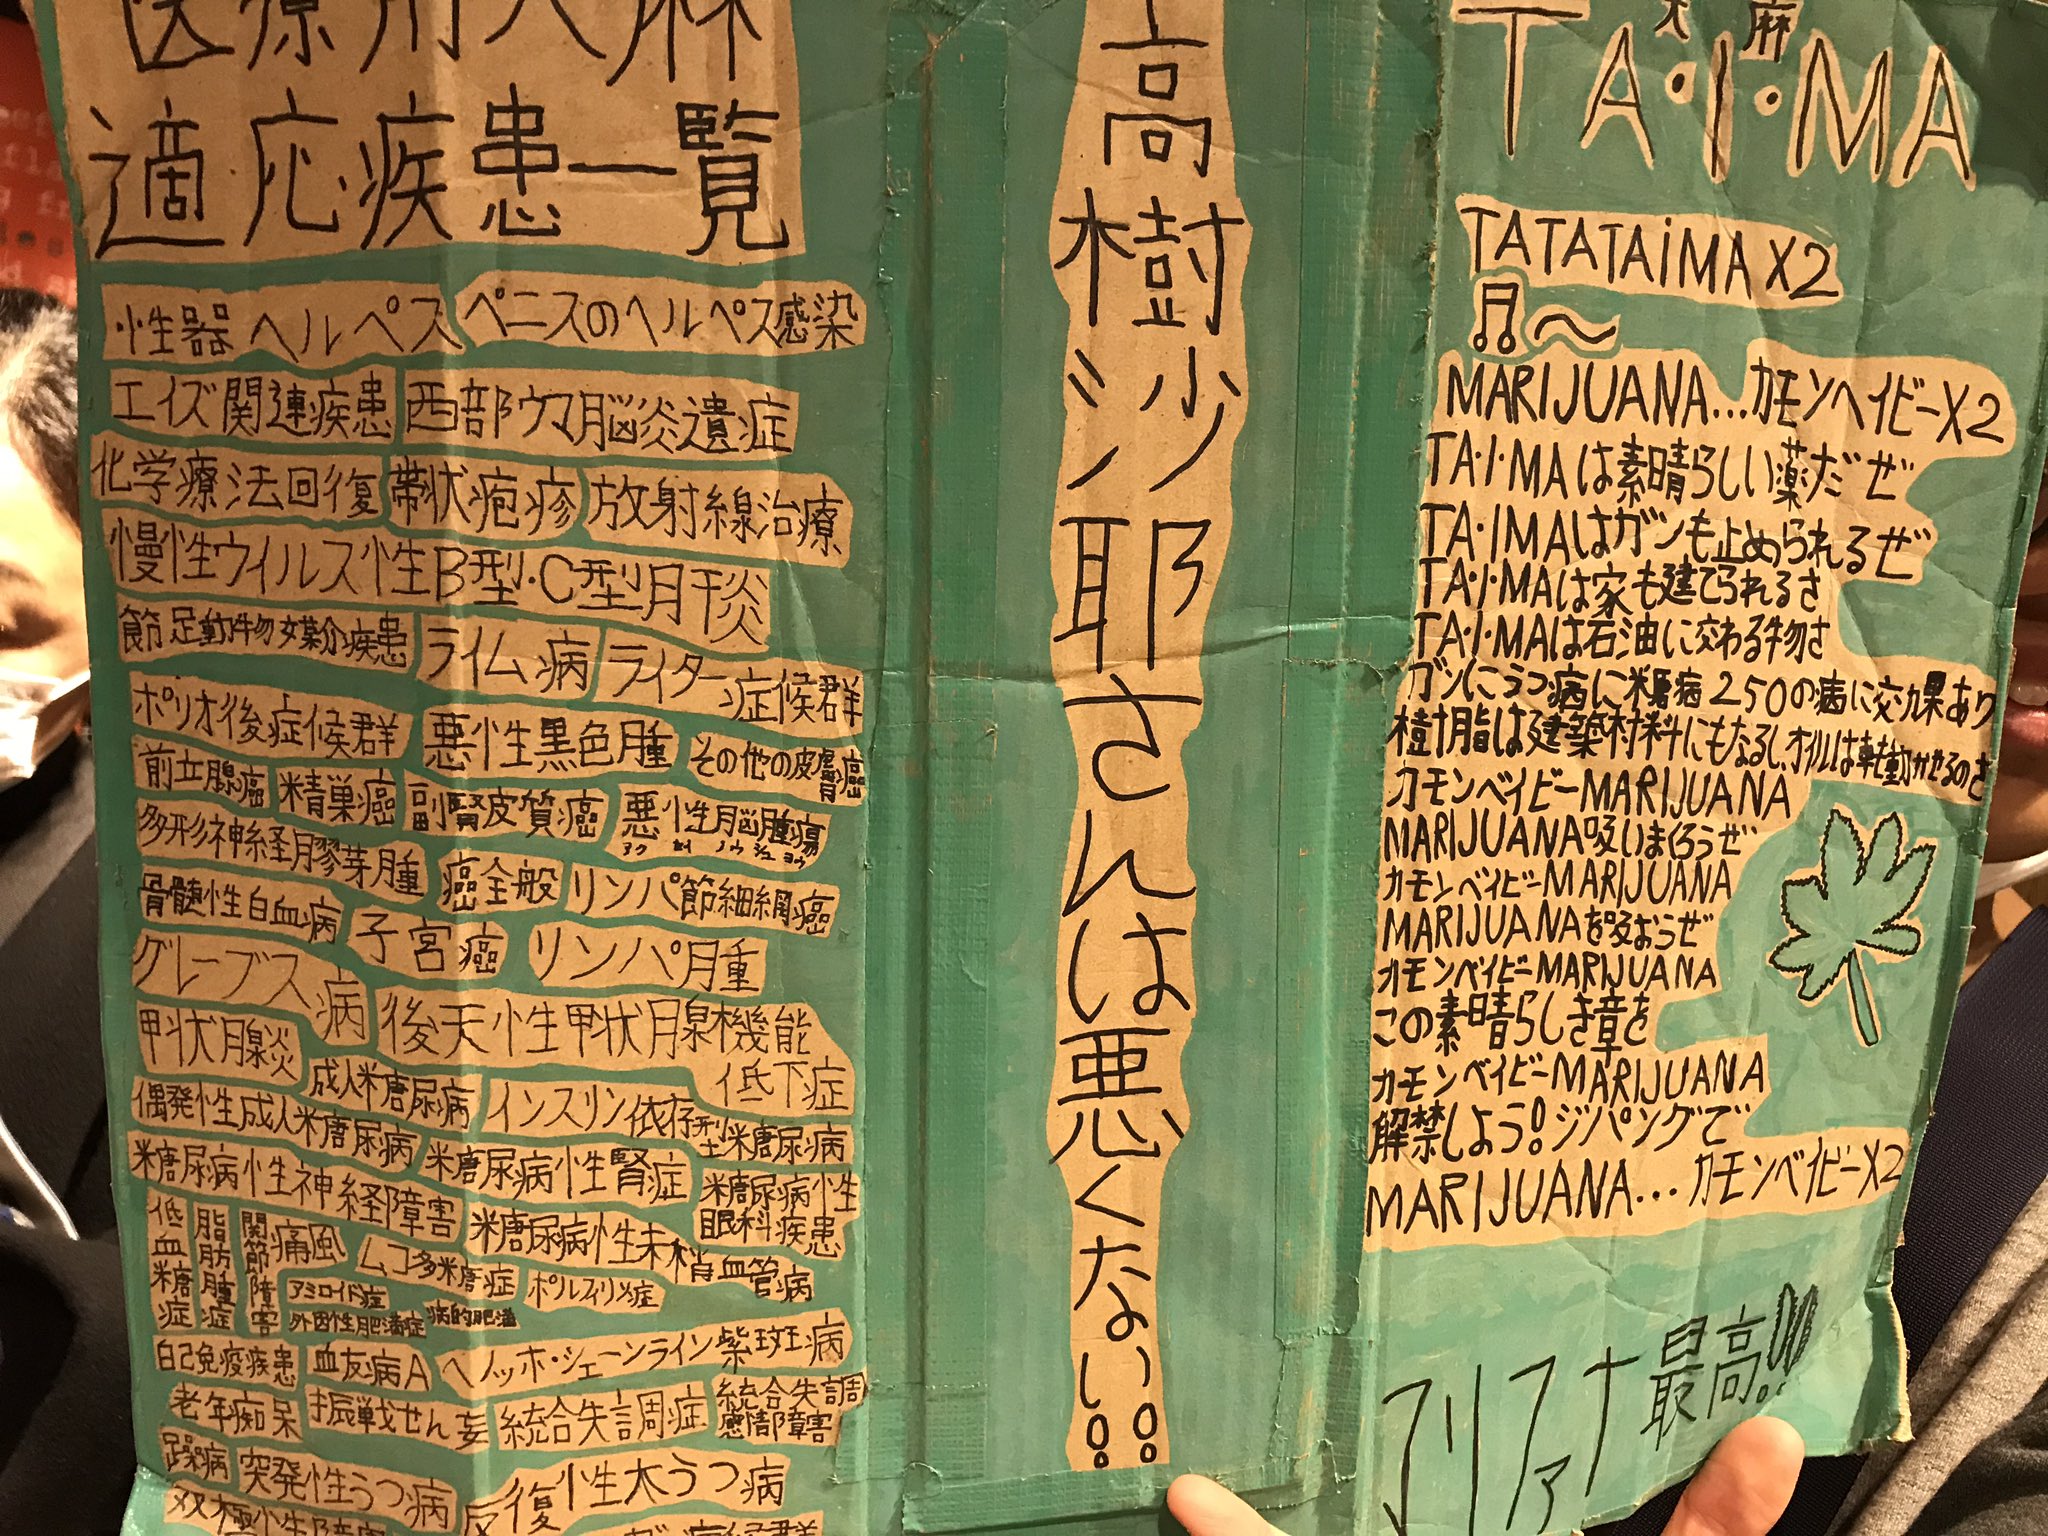 医療用大麻
適応疾患一覧
性器ヘルペス ペニスのヘルペス感染
エイズ関連疾患 西部ウマ脳炎遺症
化学療法回復 帯状疱疹 放射線治療
慢性ウイルス性B型・C型肝炎
節足動物媒介疾患 ライム病 ライター症候群
ポリオ後症候群 悪性黒色腫 その他の皮膚癌
前立腺癌 精巣癌 副腎皮質癌 悪性脳腫瘍
多形神経膠芽腫 癌全般 リンパ節細網癌
骨髄性白血病 子宮癌 リンパ腫
グレーブス病 後天性甲状腺機能低下症
甲状腺炎 成人糖尿病 インスリン依存型糖尿病
偶発性成人糖尿病 糖尿病性腎症 糖尿病性眼科疾患
糖尿病性神経障害 糖尿病性末梢血管病
低血糖症 脂肪腫症 関節障害 痛風 ムコ多糖症 ポルフィリン症
アミロイド症
外因性肥満症 病的肥満
自己免疫疾患 血友病A ヘノッホ・シェーンライン紫斑病
老年痴呆 振戦せん妄 統合失調症 統合失調感情障害
躁病 突発性うつ病 反復性大うつ病
双極性障害
高樹沙耶さんは悪くない!!
大麻
TA・I・MA
TATATAiMA X2
♫〜
MARIJUANA...カモンベイビーX2
TA・I・MAは素晴らしい薬だぜ
TA・IMAはガンも止められるぜ
TA・I・MAは家も建てられるさ
TA・I・MAは石油に交わる物さ
ガンにうつ病に糖病250の病に効果あり
樹脂は建築材料にもなるし、オイルは車も動かせるのさ
カモンベイビーMARIJUANA
MARIJUANA吸いまくろうぜ
カモンベイビーMARIJUANA
MARIJUANAを吸おうぜ
カモンベイビーMARIJUANA
この素晴らしき章を
カモンベイビーMARIJUANA
解禁しよう!ジパングで
MARIJUANA...カモンベイビーX2
マリファナ最高!!